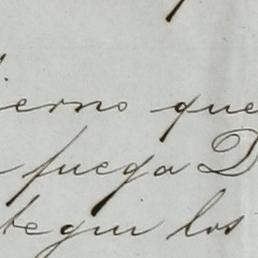 ierno que
fuega D
tegui los